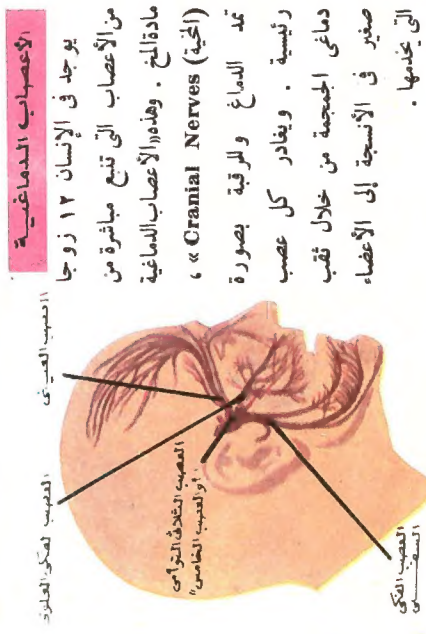 الأعصاب الدماغية
يوجد فى الإنسان ١٢ زوجا
من الأعصاب التى تنبع مباشرة من
مادة المخ . وهذه «الأعصاب الدماغية
(المخية) Cranial Nerves » ،
تمد الدماغ والرقبة بصورة
رئيسية . ويغادر كل عصب
دماغى الجمجمة من خلال ثقب
صغير فى الأنسجة إلى الأعضاء
التى يخدمها .
العصب العينى
العصب الفكى العلوى
العصب الثلاثى التوأمى
"أو العصب الخامس"
العصب الفكى
السفلى